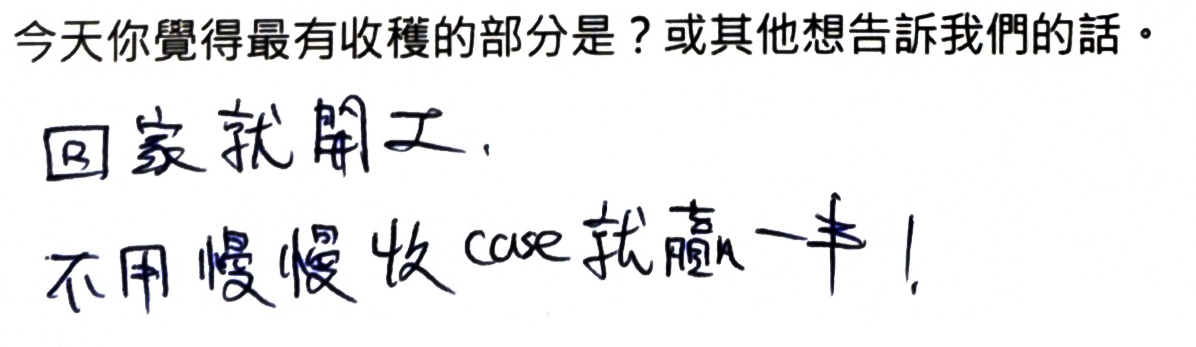 今天你覺得最有收穫的部分是？或其他想告訴我們的話。
回家就開工.
不用慢慢收case就贏一半！